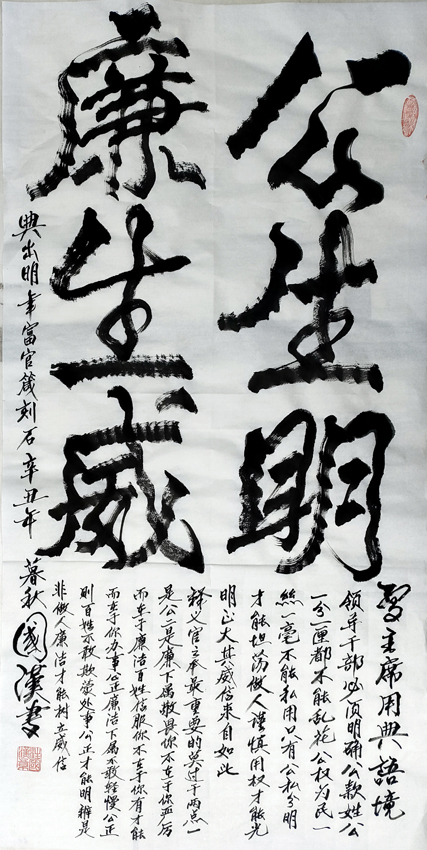 公生明
廉生威
典出明年富官箴刻石辛丑年暮秋國漢書
習主席用典語境
領导干部必须明确公款姓公
一分一厘都不能乱花公权为民一
丝一毫不能私用只有公私分明
才能坦荡做人谨慎用权才能光
明正大其威信来自如此
释义官之本最重要的莫过于两点一
是公二是廉下属敬畏你不在于你严厉
而在于廉洁百姓信服你不在于你有才能
而在于你办事公正廉洁下属不敢轻慢公正
则百姓不敢欺蒙处事公正才能明辨是
非做人廉洁才能树立威信